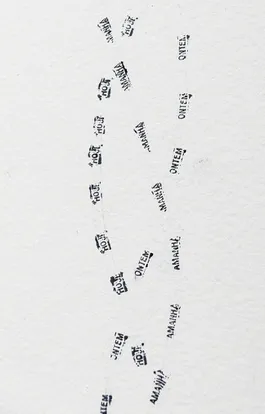 AMANHÃ HOJE
ONTEM
HOJE AMANHÃ
ONTEM
HOJE AMANHÃ
HOJE ONTEM
HOJE AMANHÃ
HOJE ONTEM AMANHÃ
HOJE
AMANHÃ
ONTEM HOJE
AMANHÃ
ONTEM